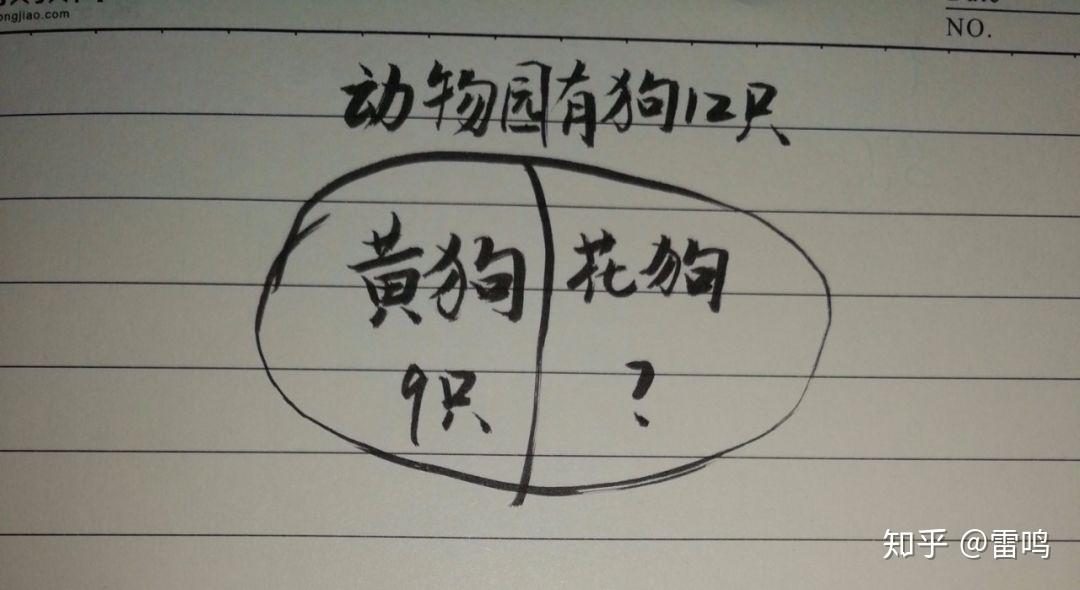 ongjiao.com
NO.
动物园有狗12只
黄狗 花狗
9只 ?
知乎 @雷鸣